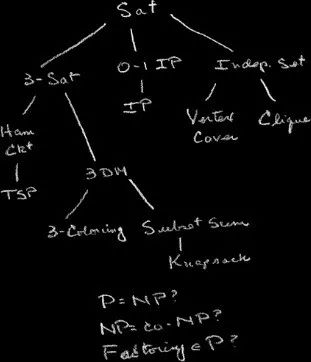 Sat
3-Sat 0-1 IP Indep. Set
IP
Ham Vertex Clique
Ckt Cover
TSP 3DM
3-Coloring Subset Sum
Knapsack
P=NP?
NP=co-NP?
Factoring ∈ P?